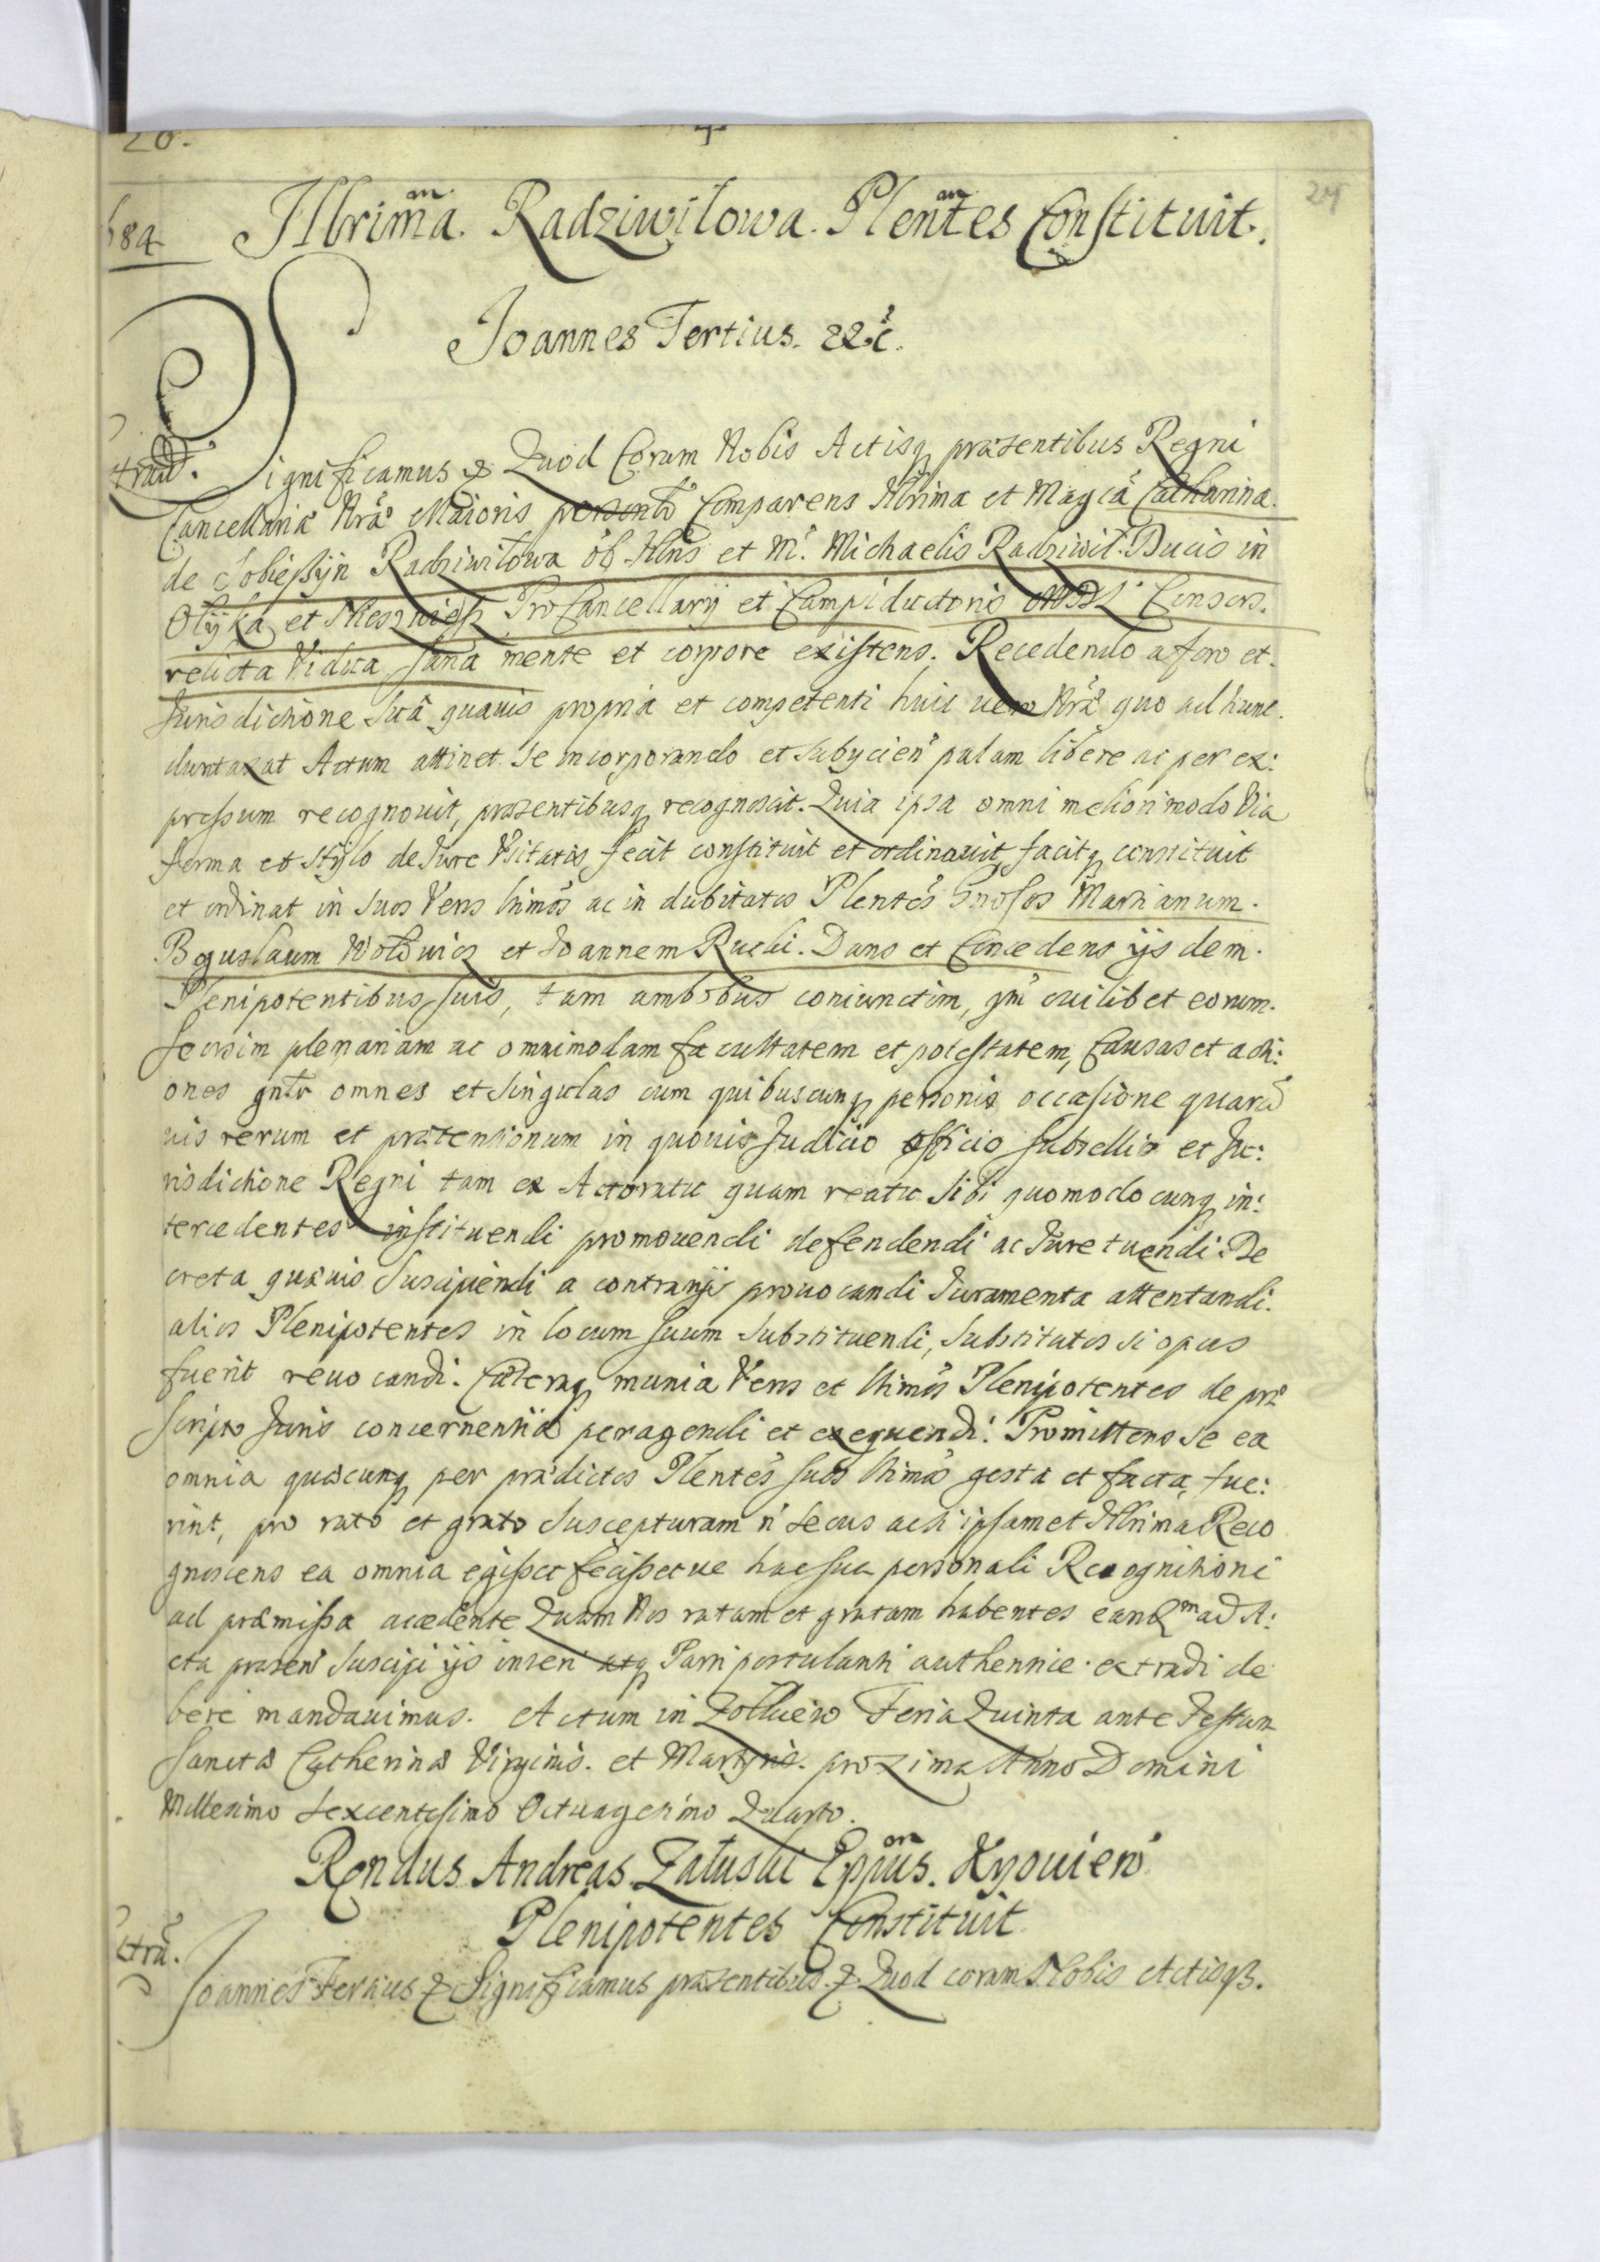 20.
24
684
Illrima. Radziwiłowa. Plentes Constituit.
Joannes Tertius. &&c.
Significamus & Quod Coram Nobis Actisq præsentibus Regni
Cancellariæ Nræ Maioris personlr Comparens Illrima et Magca Catharina.
de Sobieszyn Radziwiłowa olb Illris et M. Michaelis Radziwił. Ducis in
Ołyka et Nieswiesz ProCancellarij et Campiductoris MDL Consors.
relicta Vidua sana mente et corpore existens. Recedendo a foro et
Jurisdictione sua quavis propria et competenti huic vero Nræ quo ad hunc.
duntaxat Actum attinet se incorporando et subyicien palam libere ac per ex:
pressum recognouit, præsentibusq recognoscit. Quia ipsa omni meliori modo Via
forma et stylo de Jure Usitatis fecit constituit et ordinavit facitq constituit
et ordinat in suos Veros ltimos ac in dubitatos Plentes Gnosos Martianum.
Boguslaum Wołłowicz et Joannem Rucki. Dans et Concedens ijs dem.
Plenipotentibus suis, tam ambobus coniunctim, qm cuilibet eorum.
seorsim plenariam ac omnimodam facultatem et potestatem, Causas et acti:
ones gntr omnes et singulas cum quibuscunq personis occasione quarū
uis rerum et prætensionum in quouis Judicio officio subsellio et Ju:
risdictione Regni tam ex Actoratu quam reatu sibi quomodocunq in:
tercedentes instituendi promouendi defendendi ac Jure tuendi. De
creta quæuis suscipiendi a contrarijs prouocandi Juramenta attentandi.
alios Plenipotentes in locum suum substituendi, substitutos si opus
fuerit reuocandi. Cæteraq munia Veros et ltimos Plenipotentes de præ
scripto Juris concernentia peragendi et exequendi. Promittens se ea
omnia quæcunq per prædictos Plentes suos ltimos gesta et facta fue:
rint, pro rato et grato suscepturam n secus ac si ipsamet Illrima Reco
gnoscens ea omnia egisset fecissetue hac sua personali Recognitioni
ad præmissa accedente Quam Nos ratam et gratam habentes eandm ad A:
cta præsen suscipi ijs inseri atq Parti postulanti authentice extradi de
bere mandauimus. Actum in Zołkiew Feria Quinta ante Festum
Sanctæ Catherinæ Virginis. et Martyris. proxima Anno Domini
Millesimo sexcentesimo Octuagesimo Quarto.
Rendus Andreas Załuski Eppus. Kyouien
Plenipotentes Constituit
Joannes Tertius & Significamus præsentibus & Quod coram Nobis Actisq3.